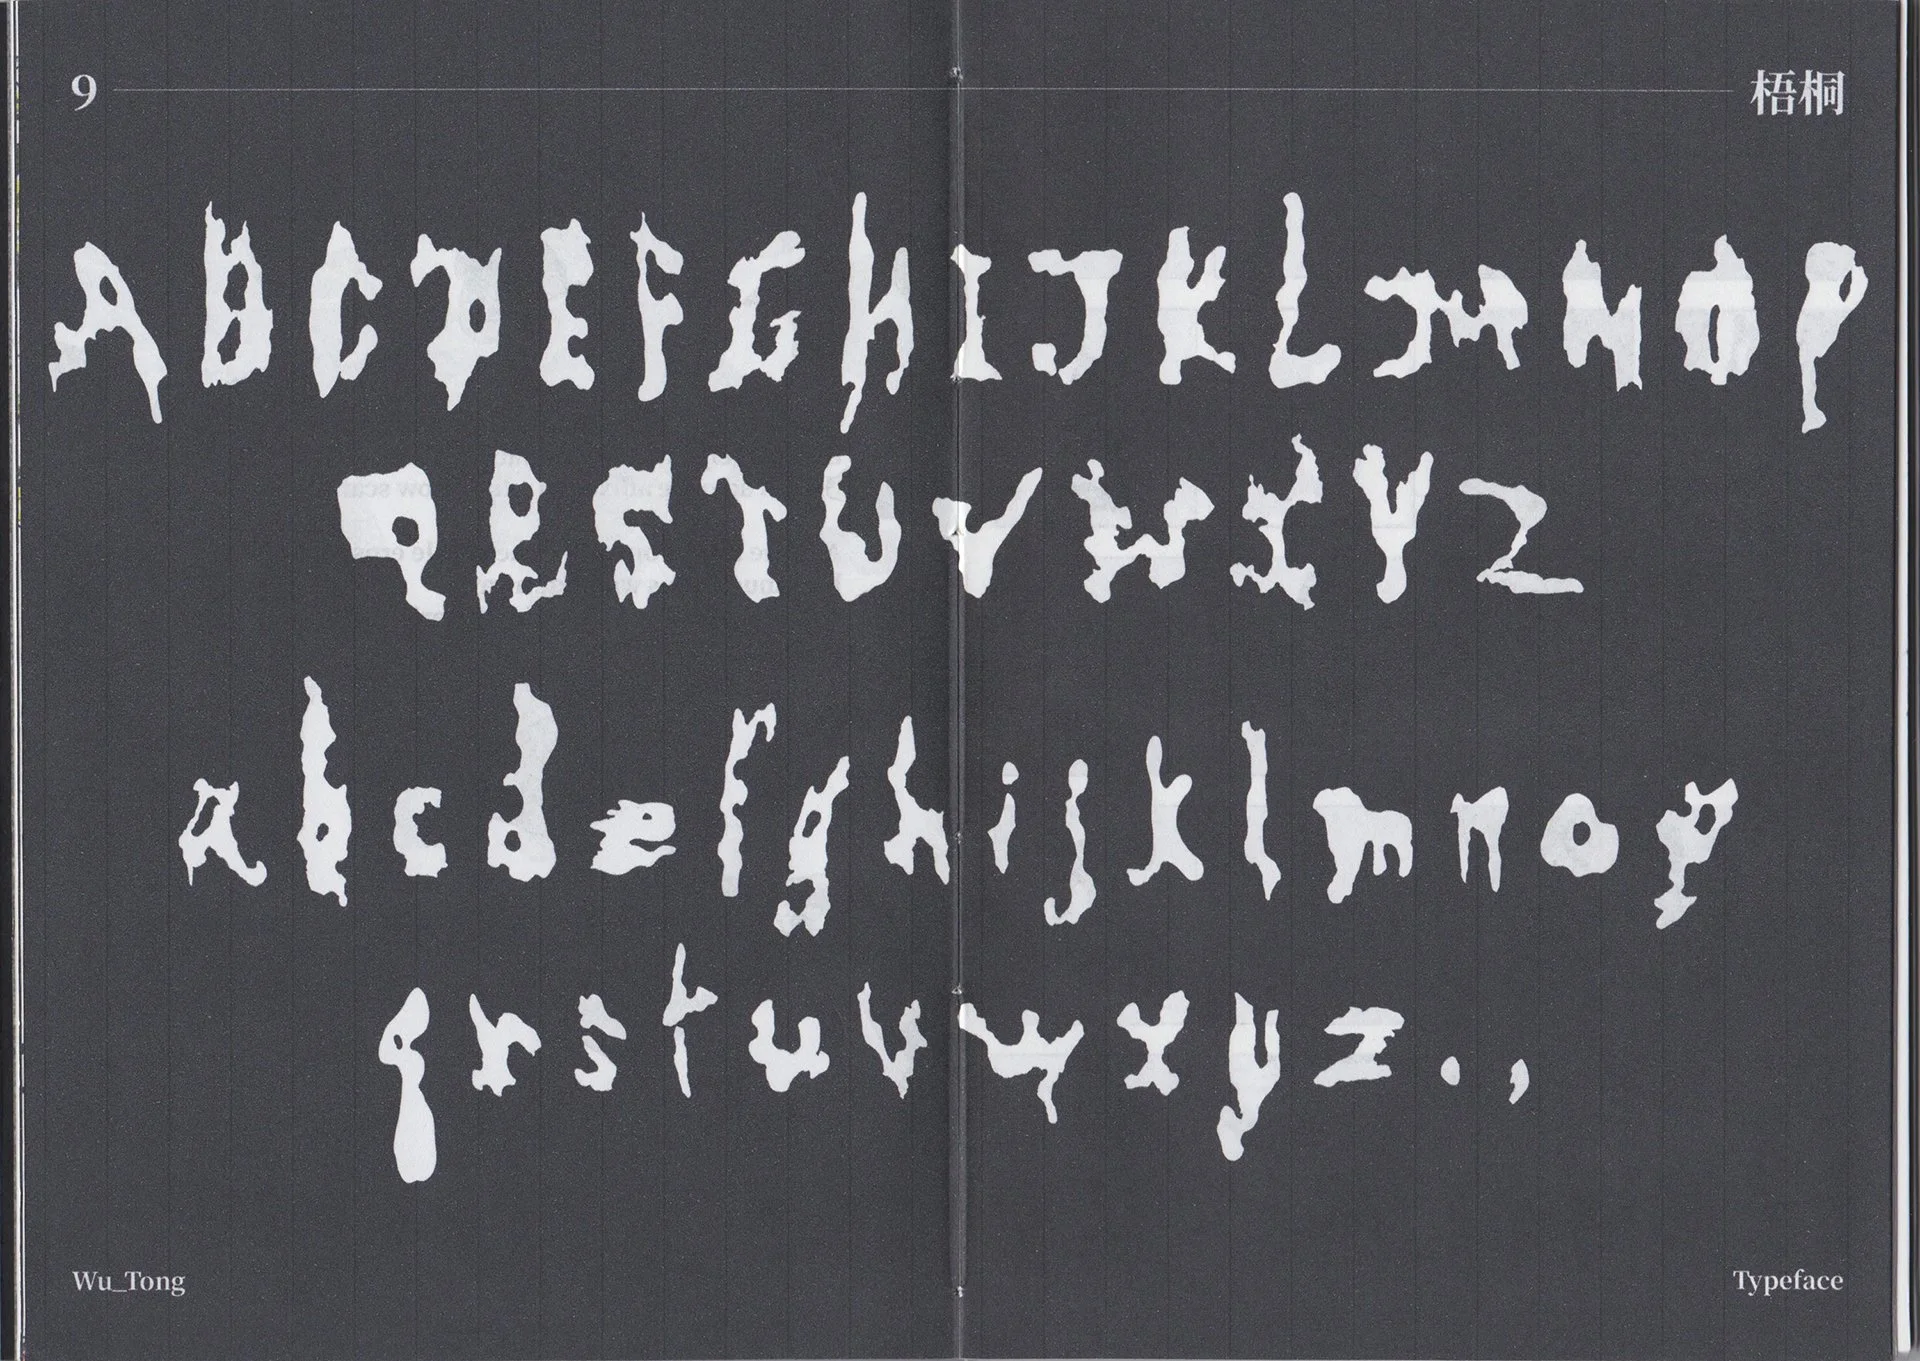 9 梧桐
A B C D E F G H I J K L M N O P
Q R S T U V W X Y Z
a b c d e f g h i j k l m n o p
q r s t u v w x y z . ,
Wu_Tong Typeface